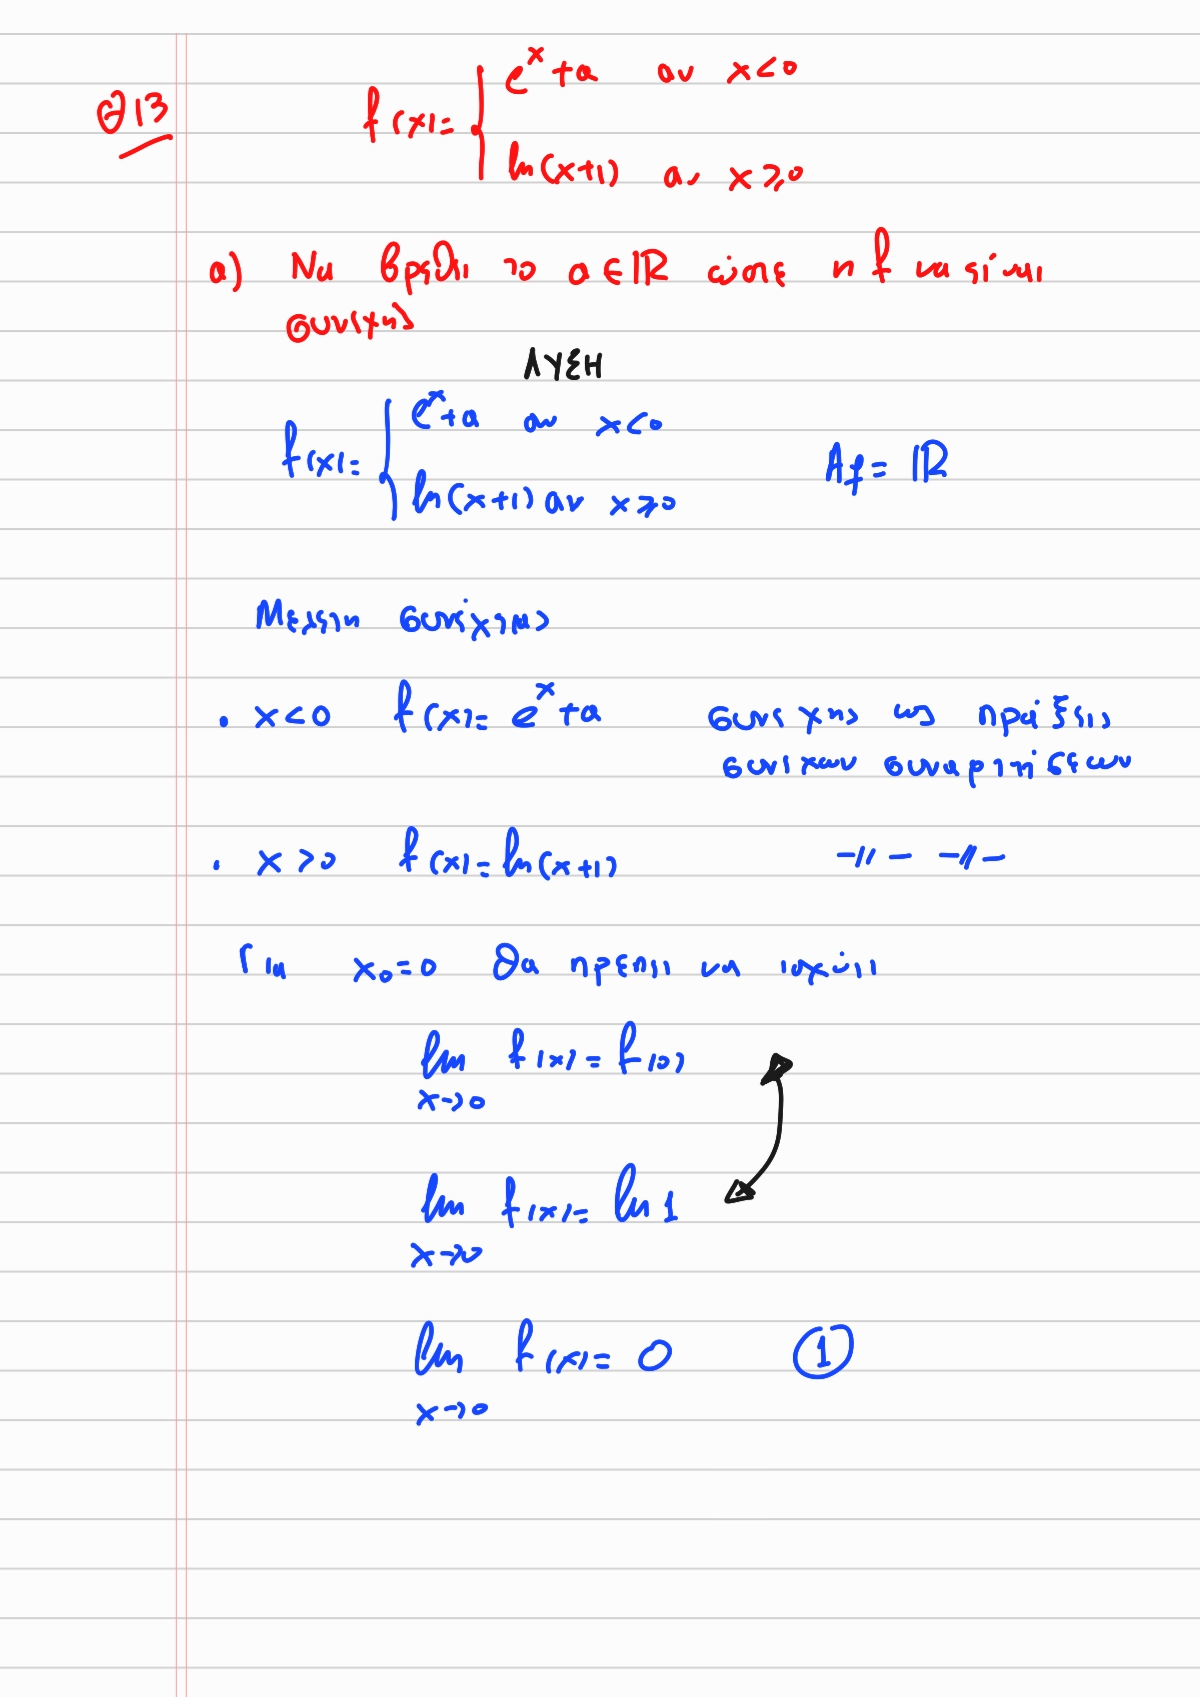 Θ13
f(x)= { e^x+α αν x<0
ln(x+1) αν x≥0
α) Να βρεθει το α∈ℝ ώστε η f να είναι
συνεχης
ΛΥΣΗ
f(x)= { e^x+α αν x<0
ln(x+1) αν x≥0 A_f=ℝ
Μελετη συνέχειας
• x<0 f(x)=e^x+α συνεχης ως πράξεις
συνεχων συναρτήσεων
• x>0 f(x)=ln(x+1) -//- -//-
Για x₀=0 θα πρεπει να ισχύει
lim f(x)=f(0)
x→0
lim f(x)=ln1
x→0
lim f(x)=0 ①
x→0